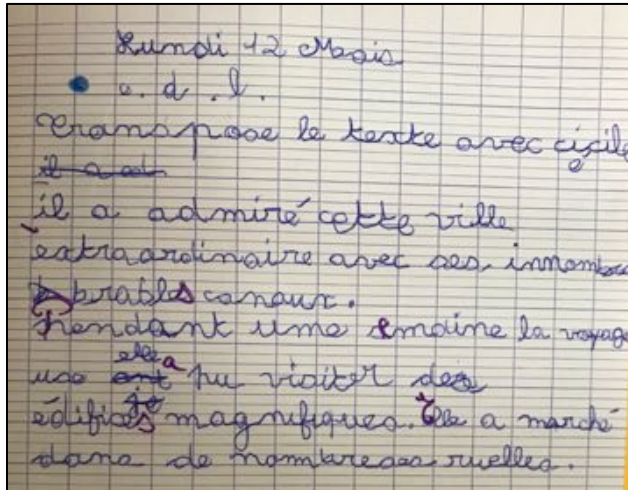 Lundi 12 Mars
e. d. l.
transpose le texte avec
il a ad
il a admiré cette ville
extraordinaire avec ses innombra
brables canaux.
Pendant une smaine la voyage
use elle a pu visiter des
édifices magnifiques. Elle a marché
dans de nombreses ruelles.